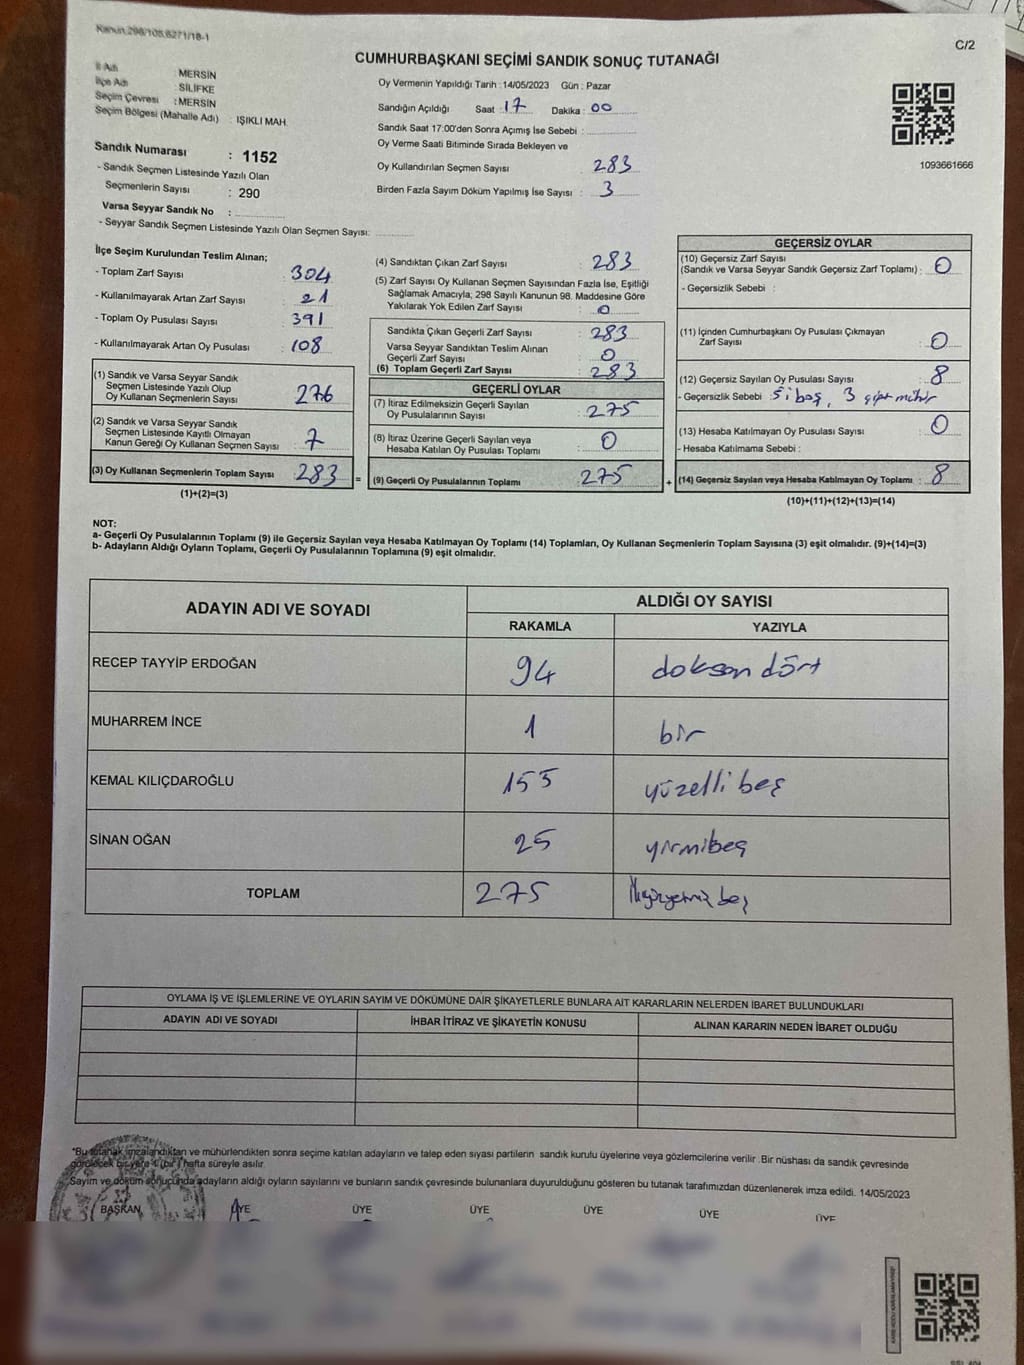 Kanun:298/105,6271/18-1
C/2
CUMHURBAŞKANI SEÇİMİ SANDIK SONUÇ TUTANAĞI
İl Adı : MERSİN
İlçe Adı : SİLİFKE
Seçim Çevresi : MERSİN
Seçim Bölgesi (Mahalle Adı) : IŞIKLI MAH.
Oy Vermenin Yapıldığı Tarih : 14/05/2023 Gün : Pazar
Sandığın Açıldığı Saat : 17 Dakika : 00
Sandık Saat 17:00'den Sonra Açımış İse Sebebi :
Oy Verme Saati Bitiminde Sırada Bekleyen ve
Oy Kullandırılan Seçmen Sayısı 283
Birden Fazla Sayım Döküm Yapılmış İse Sayısı : 3
1093661666
Sandık Numarası : 1152
- Sandık Seçmen Listesinde Yazılı Olan
Seçmenlerin Sayısı : 290
Varsa Seyyar Sandık No :
- Seyyar Sandık Seçmen Listesinde Yazılı Olan Seçmen Sayısı:
İlçe Seçim Kurulundan Teslim Alınan;
- Toplam Zarf Sayısı : 304
- Kullanılmayarak Artan Zarf Sayısı : 21
- Toplam Oy Pusulası Sayısı : 391
- Kullanılmayarak Artan Oy Pusulası : 108
(1) Sandık ve Varsa Seyyar Sandık
Seçmen Listesinde Yazılı Olup
Oy Kullanan Seçmenlerin Sayısı : 276
(2) Sandık ve Varsa Seyyar Sandık
Seçmen Listesinde Kayıtlı Olmayan
Kanun Gereği Oy Kullanan Seçmen Sayısı : 7
(3) Oy Kullanan Seçmenlerin Toplam Sayısı : 283 =
(1)+(2)=(3)
(4) Sandıktan Çıkan Zarf Sayısı : 283
(5) Zarf Sayısı Oy Kullanan Seçmen Sayısından Fazla İse, Eşitliği
Sağlamak Amacıyla; 298 Sayılı Kanunun 98. Maddesine Göre
Yakılarak Yok Edilen Zarf Sayısı : 0
Sandıkta Çıkan Geçerli Zarf Sayısı : 283
Varsa Seyyar Sandıktan Teslim Alınan
Geçerli Zarf Sayısı : 0
(6) Toplam Geçerli Zarf Sayısı : 283
GEÇERLİ OYLAR
(7) İtiraz Edilmeksizin Geçerli Sayılan
Oy Pusulalarının Sayısı : 275
(8) İtiraz Üzerine Geçerli Sayılan veya
Hesaba Katılan Oy Pusulası Toplamı : 0
(9) Geçerli Oy Pusulalarının Toplamı : 275 +
GEÇERSİZ OYLAR
(10) Geçersiz Zarf Sayısı
(Sandık ve Varsa Seyyar Sandık Geçersiz Zarf Toplamı) : 0
- Geçersizlik Sebebi :
(11) İçinden Cumhurbaşkanı Oy Pusulası Çıkmayan
Zarf Sayısı : 0
(12) Geçersiz Sayılan Oy Pusulası Sayısı : 8
- Geçersizlik Sebebi : 5 i boş, 3 çift mühür
(13) Hesaba Katılmayan Oy Pusulası Sayısı : 0
- Hesaba Katılmama Sebebi :
(14) Geçersiz Sayılan veya Hesaba Katılmayan Oy Toplamı : 8
(10)+(11)+(12)+(13)=(14)
NOT:
a- Geçerli Oy Pusulalarının Toplamı (9) ile Geçersiz Sayılan veya Hesaba Katılmayan Oy Toplamı (14) Toplamları, Oy Kullanan Seçmenlerin Toplam Sayısına (3) eşit olmalıdır. (9)+(14)=(3)
b- Adayların Aldığı Oyların Toplamı, Geçerli Oy Pusulalarının Toplamına (9) eşit olmalıdır.
ADAYIN ADI VE SOYADI ALDIĞI OY SAYISI
RAKAMLA YAZIYLA
RECEP TAYYİP ERDOĞAN 94 doksan dört
MUHARREM İNCE 1 bir
KEMAL KILIÇDAROĞLU 155 yüzelli beş
SİNAN OĞAN 25 yirmibeş
TOPLAM 275 İkiyüzyetmiş beş
OYLAMA İŞ VE İŞLEMLERİNE VE OYLARIN SAYIM VE DÖKÜMÜNE DAİR ŞİKAYETLERLE BUNLARA AİT KARARLARIN NELERDEN İBARET BULUNDUKLARI
ADAYIN ADI VE SOYADI İHBAR İTİRAZ VE ŞİKAYETİN KONUSU ALINAN KARARIN NEDEN İBARET OLDUĞU
"Bu tutanak imzalandıktan ve mühürlendikten sonra seçime katılan adayların ve talep eden siyasi partilerin sandık kurulu üyelerine veya gözlemcilerine verilir .Bir nüshası da sandık çevresinde
görülecek bir yere 1 (bir) hafta süreyle asılır.
Sayım ve döküm sonucunda adayların aldığı oyların sayılarını ve bunların sandık çevresinde bulunanlara duyurulduğunu gösteren bu tutanak tarafımızdan düzenlenerek imza edildi. 14/05/2023
BAŞKAN ÜYE ÜYE ÜYE ÜYE ÜYE ÜYE